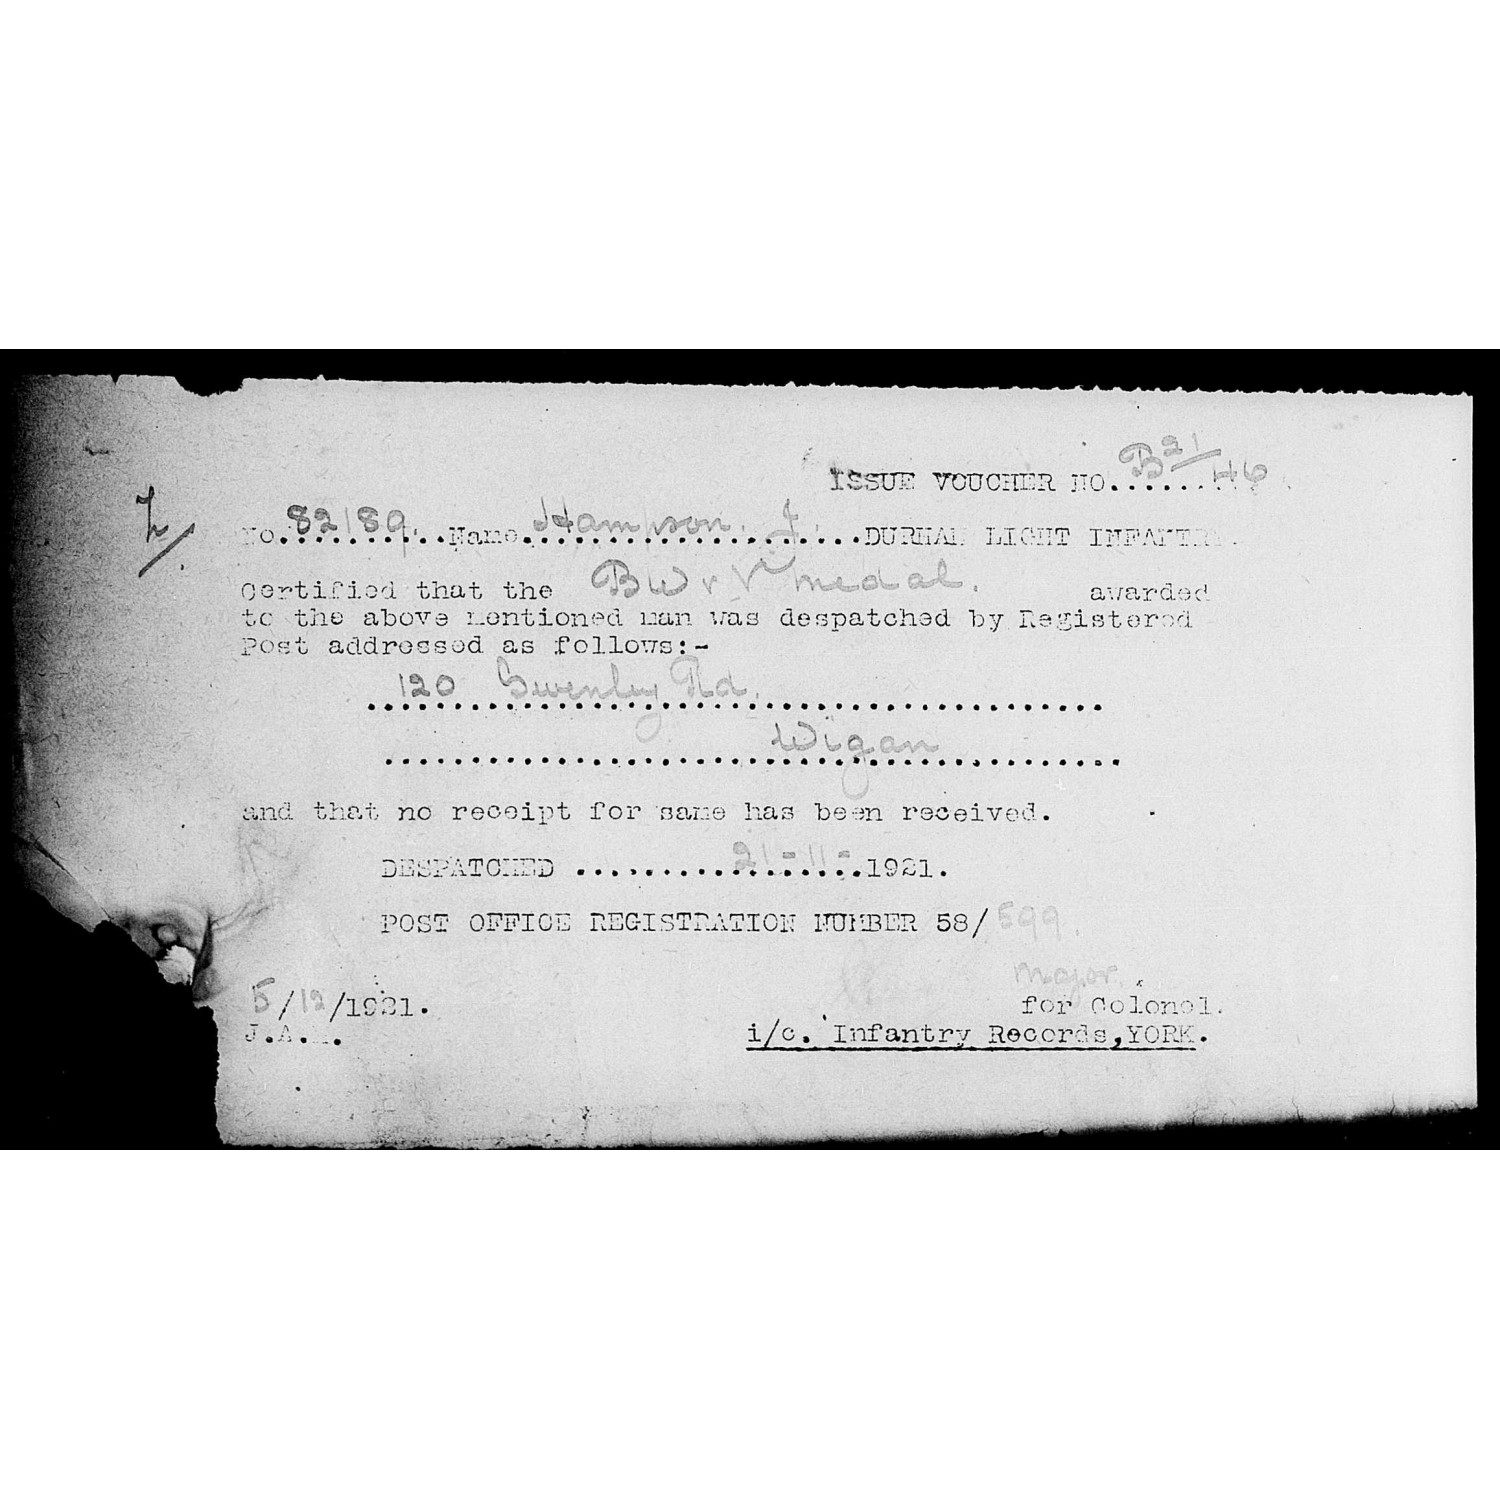 ISSUE VOUCHER NO. B21/46
No. 82189. Name. Hampson. J. DURHAM LIGHT INFANTRY.
Certified that the BW & V medal. awarded
to the above mentioned man was despatched by Registered
Post addressed as follows:-
120 Rd.
Wigan
and that no receipt for same has been received.
DESPATCHED ........ 21-11-1921.
POST OFFICE REGISTRATION NUMBER 58/599.
Major.
5/12/1921. for Colonel.
J.A. i/c. Infantry Records, YORK.